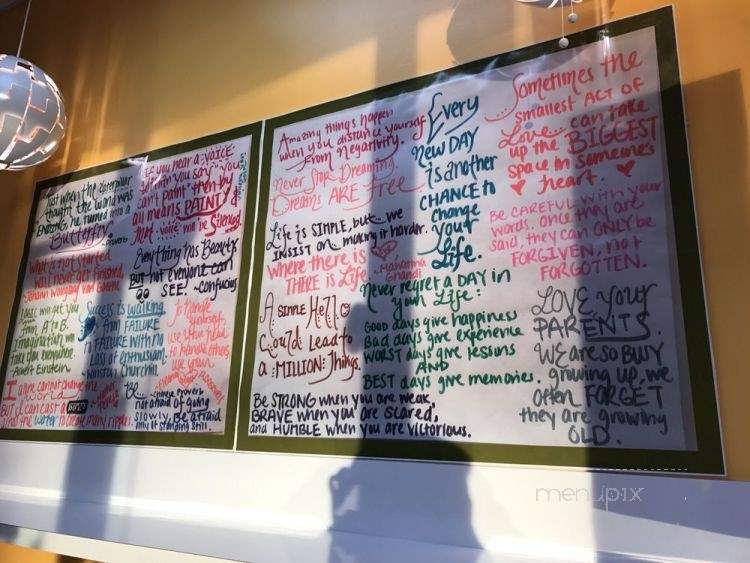 Just when the caterpillar
thought the world was
ENDING, he turned into a
Butterfly. -Proverb
If you hear a VOICE
within you say "you
can't paint" then by
all means PAINT,
and that voice will be Silenced
Everything has Beauty
But not everyone can
SEE! -Confucius
What is not started
will never get finished
-Johann Wolfgang von Goethe
LOGIC will get you
from A to B.
imagination will
take you everywhere.
-Albert Einstein
Success is walking
from FAILURE
to FAILURE with no
Loss of enthusiasm.
Winston Churchill
To handle
yourself,
use your head
to handle others,
use your
heart
I alone cannot change the
world
But I can cast a STONE
across the water to create many ripples.
BE
Chinese Proverb
not afraid of going
Slowly, Be afraid
only of standing still.
Amazing things happen
when you distance yourself
from Negativity.
Never Stop Dreaming.
Dreams ARE Free
Life is SIMPLE, but we
INSIST on making it harder.
where there is Love
THERE is Life. -Mahatma
Ghandi
A SIMPLE Hello
Could Lead to
a MILLION Things.
Be STRONG when you are weak,
BRAVE when you are scared,
and HUMBLE when you are victorious.
Every
NEW DAY
is another
CHANCE to
change
your
Life.
Never regret a DAY in
your Life:
GOOD days give happiness
Bad days give experience
WORST days give lessons
AND
BEST days give memories.
Sometimes the
smallest ACT OF
Love... can take
up the BIGGEST
space in someone's
heart.
BE CAREFUL with your
words. once they are
said, they can ONLY be
FORGIVEN, not
FORGOTTEN.
LOVE your
PARENTS.
WE are so BUSY
growing up, we
often FORGET
they are growing
OLD.
menupix